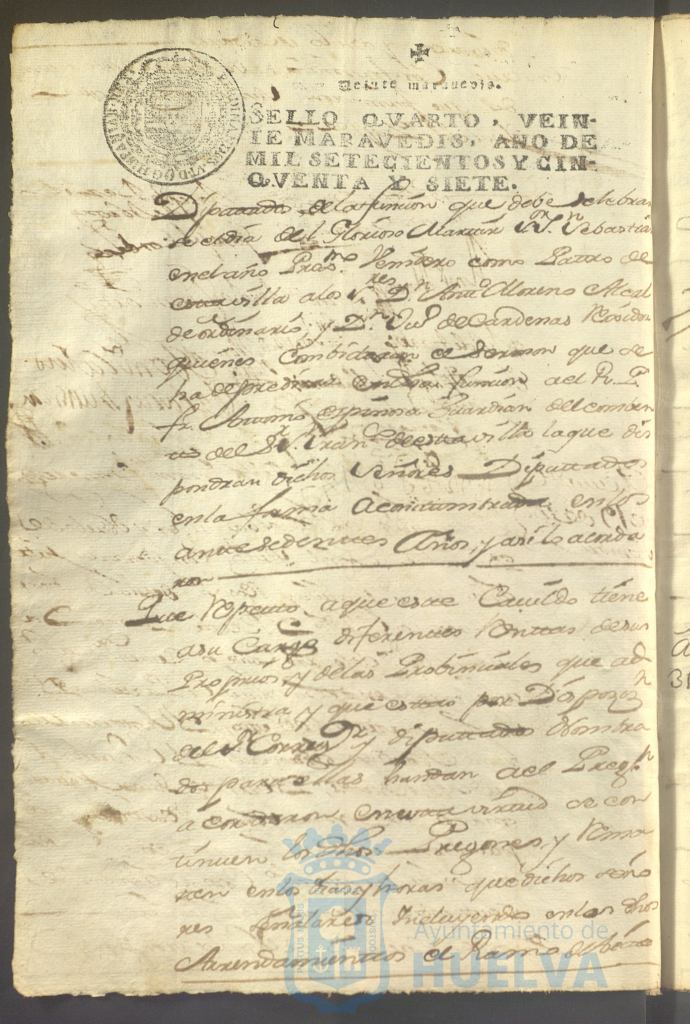 Veinte maravedis.
SELLO QVARTO, VEIN-
TE MARAVEDIS, AÑO DE
MIL SETECIENTOS Y CIN-
QVENTA Y SIETE.
Diputados de la función que debe selebrar
se el dia del Glorioso Martir Sr. Sn. Sebastian
en el año Presmo. Venidero como Patro de
esta villa a los Sres. Dn. Anto. Moreno Alcal
de ordinario, y Dn. de Cardenas Rexidor
quienes Combidaran el Sermon que se
ha de predicar en dha funsion al R. P.
fr. Antonio espinosa Guardian del comben
to del Sr. Sn. Franco. de esta villa la que dis
pondran dichos Señores Diputados
en la forma acostumbrada en los
antesedentes Años, y asi lo acorda
ron
Que Respecto a que este Cavildo tiene
a su Cargo diferentes Renttas de sus
Propios, y de las Probinsiales que ad
ministra y que estas por Disposizn.
del Sr. Corregr. y diputados Nombra
dos para ellas handan al Pregn.
acordaron en esta virtud se con
tinuen los dhos Pregones, y Rema
ten en los dias y horas que dichos seño
res señalaren Incluyendo en los dhos
Arrendamientos el Ramo de
Ayuntamiento de
HUELVA